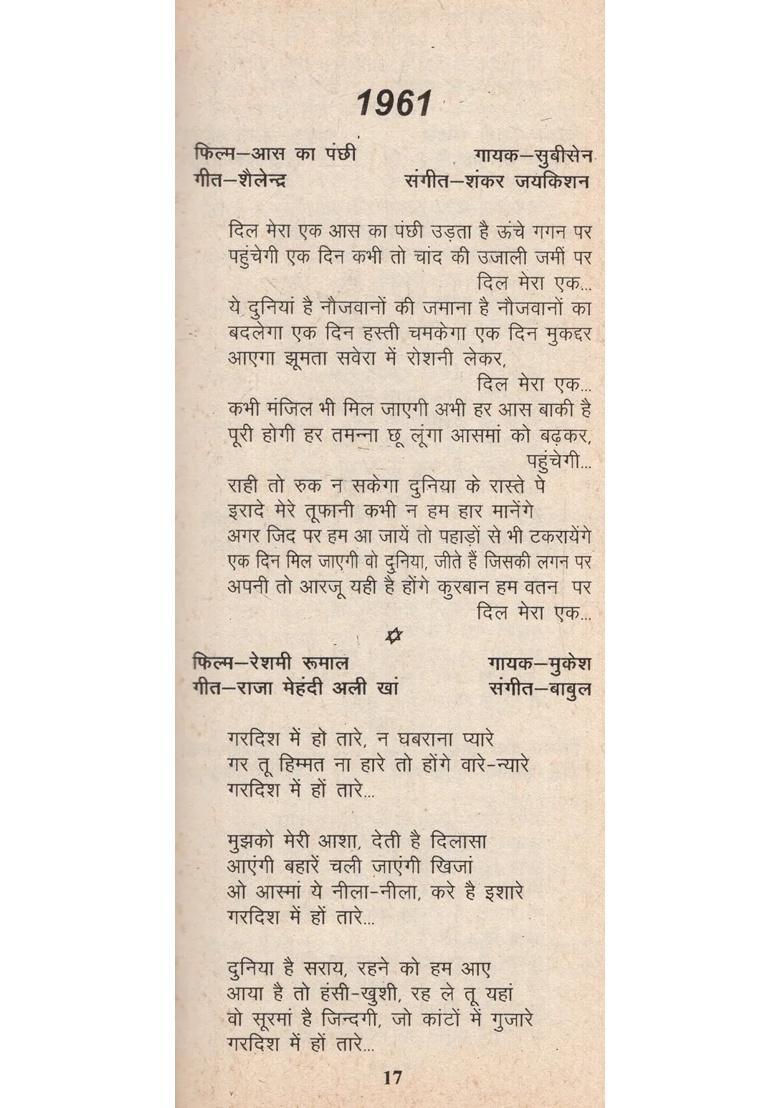 1961
फिल्म–आस का पंछी गायक–सुबीसेन
गीत–शैलेन्द्र संगीत–शंकर जयकिशन
दिल मेरा एक आस का पंछी उड़ता है ऊंचे गगन पर
पहुंचेगी एक दिन कभी तो चांद की उजाली जमीं पर
दिल मेरा एक...
ये दुनियां है नौजवानों की जमाना है नौजवानों का
बदलेगा एक दिन हस्ती चमकेगा एक दिन मुकद्दर
आएगा झूमता सवेरा में रोशनी लेकर,
दिल मेरा एक...
कभी मंजिल भी मिल जाएगी अभी हर आस बाकी है
पूरी होगी हर तमन्ना छू लूंगा आसमां को बढ़कर,
पहुंचेगी...
राही तो रुक न सकेगा दुनिया के रास्ते पे
इरादे मेरे तूफानी कभी न हम हार मानेंगे
अगर जिद पर हम आ जायें तो पहाड़ों से भी टकरायेंगे
एक दिन मिल जाएगी वो दुनिया, जीते हैं जिसकी लगन पर
अपनी तो आरजू यही है होंगे कुरबान हम वतन पर
दिल मेरा एक...
फिल्म–रेशमी रूमाल गायक–मुकेश
गीत–राजा मेहंदी अली खां संगीत–बाबुल
गरदिश में हो तारे, न घबराना प्यारे
गर तू हिम्मत ना हारे तो होंगे वारे-न्यारे
गरदिश में हों तारे...
मुझको मेरी आशा, देती है दिलासा
आएंगी बहारें चली जाएंगी खिजां
ओ आस्मां ये नीला-नीला, करे है इशारे
गरदिश में हों तारे...
दुनिया है सराय, रहने को हम आए
आया है तो हंसी-खुशी, रह ले तू यहां
वो सूरमां है जिन्दगी, जो कांटों में गुजारे
गरदिश में हों तारे...
17